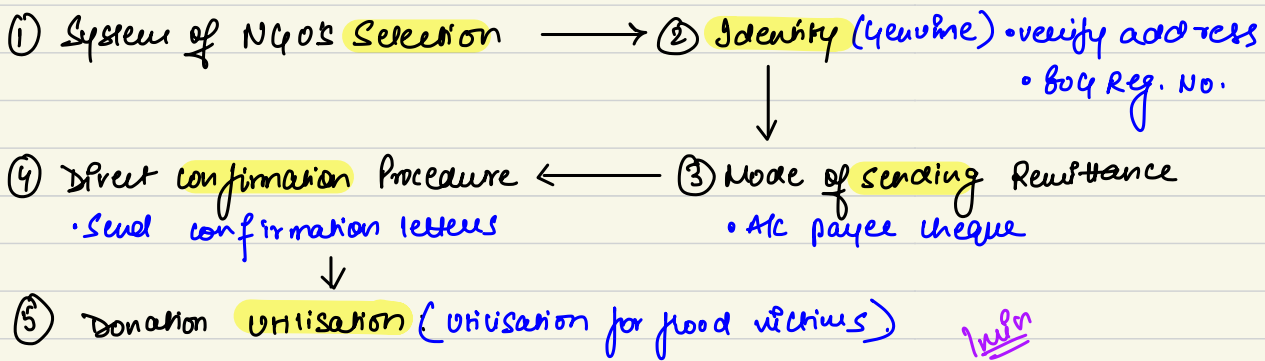 ① System of NGO's Selection → ② Identity (Genuine) • verify address
• 80G Reg. No.
④ Direct confirmation Procedure ← ③ Mode of sending Remittance
• Send confirmation letters • A/c payee cheque
⑤ Donation Utilisation (Utilisation for flood victims)
1 min